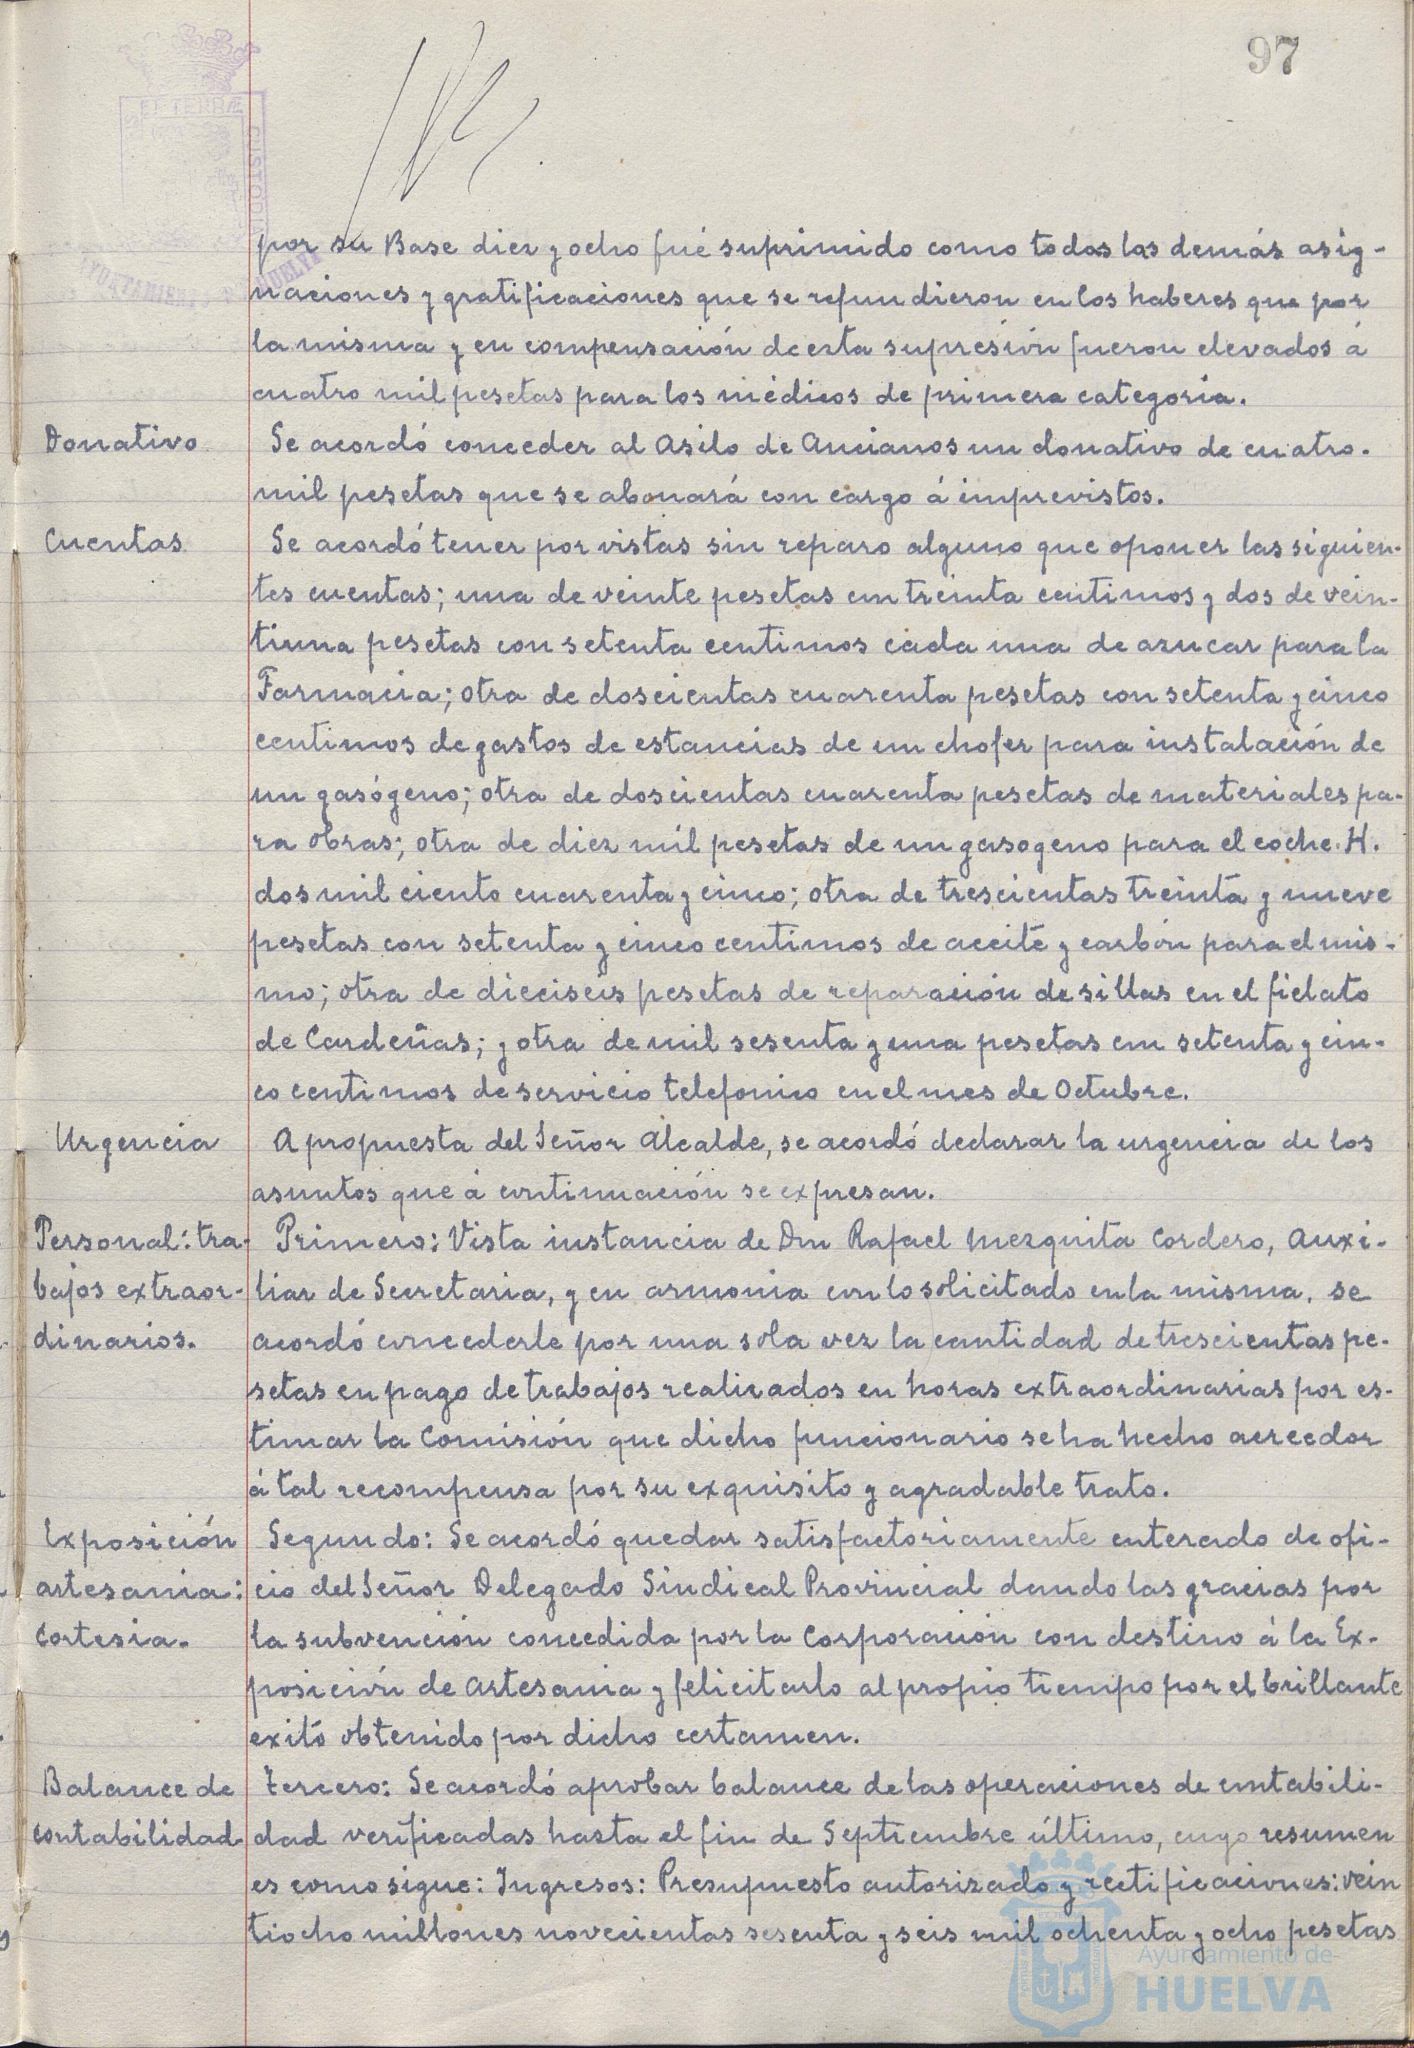 97
ET TERRÆ
CUSTODI
AYUNTAMIENTO DE HUELVA
por su Base diez y ocho fué suprimido como todas las demás asig-
naciones y gratificaciones que se refundieron en los haberes que por
la misma y en compensación de esta supresión fueron elevados á
cuatro mil pesetas para los médicos de primera categoría.
Donativo. Se acordó conceder al Asilo de Ancianos un donativo de cuatro.
mil pesetas que se abonará con cargo á imprevistos.
Cuentas. Se acordó tener por vistas sin reparo alguno que oponer las siguien-
tes cuentas; una de veinte pesetas con treinta centimos y dos de vein-
tiuna pesetas con setenta centimos cada una de azucar para la
Farmacia; otra de doscientas cuarenta pesetas con setenta y cinco
centimos de gastos de estancias de un chofer para instalación de
un gasógeno; otra de doscientas cuarenta pesetas de materiales pa-
ra obras; otra de diez mil pesetas de un gasogeno para el coche. H.
dos mil ciento cuarenta y cinco; otra de trescientas treinta y nueve
pesetas con setenta y cinco centimos de aceite y carbón para el mis-
mo; otra de dieciseis pesetas de reparación de sillas en el fielato
de Cardeñas; y otra de mil sesenta y una pesetas con setenta y cin-
co centimos de servicio telefonico en el mes de Octubre.
Urgencia A propuesta del Señor Alcalde, se acordó declarar la urgencia de los
asuntos que á continuación se expresan.
Personal: tra- Primero: Vista instancia de Don Rafael Mezquita Cordero, Auxi-
bajos extraor- liar de Secretaria, y en armonia con lo solicitado en la misma, se
dinarios. acordó concederle por una sola vez la cantidad de trescientas pe-
setas en pago de trabajos realizados en horas extraordinarias por es-
timar la Comisión que dicho funcionario se ha hecho acreedor
á tal recompensa por su exquisito y agradable trato.
Exposición Segundo: Se acordó quedar satisfactoriamente enterado de ofi-
artesania: cio del Señor Delegado Sindical Provincial dando las gracias por
cortesia. la subvención concedida por la Corporación con destino á la Ex-
posición de Artesania y felicitarlo al propio tiempo por el brillante
exitó obtenido por dicho certamen.
Balance de Tercero: Se acordó aprobar balance de las operaciones de contabili-
contabilidad. dad verificadas hasta el fin de Septiembre último, cuyo resumen
es como sigue: Ingresos: Presupuesto autorizado y rectificaciones: vein
tiocho millones novecientas sesenta y seis mil ochenta y ocho pesetas
Ayuntamiento de
HUELVA